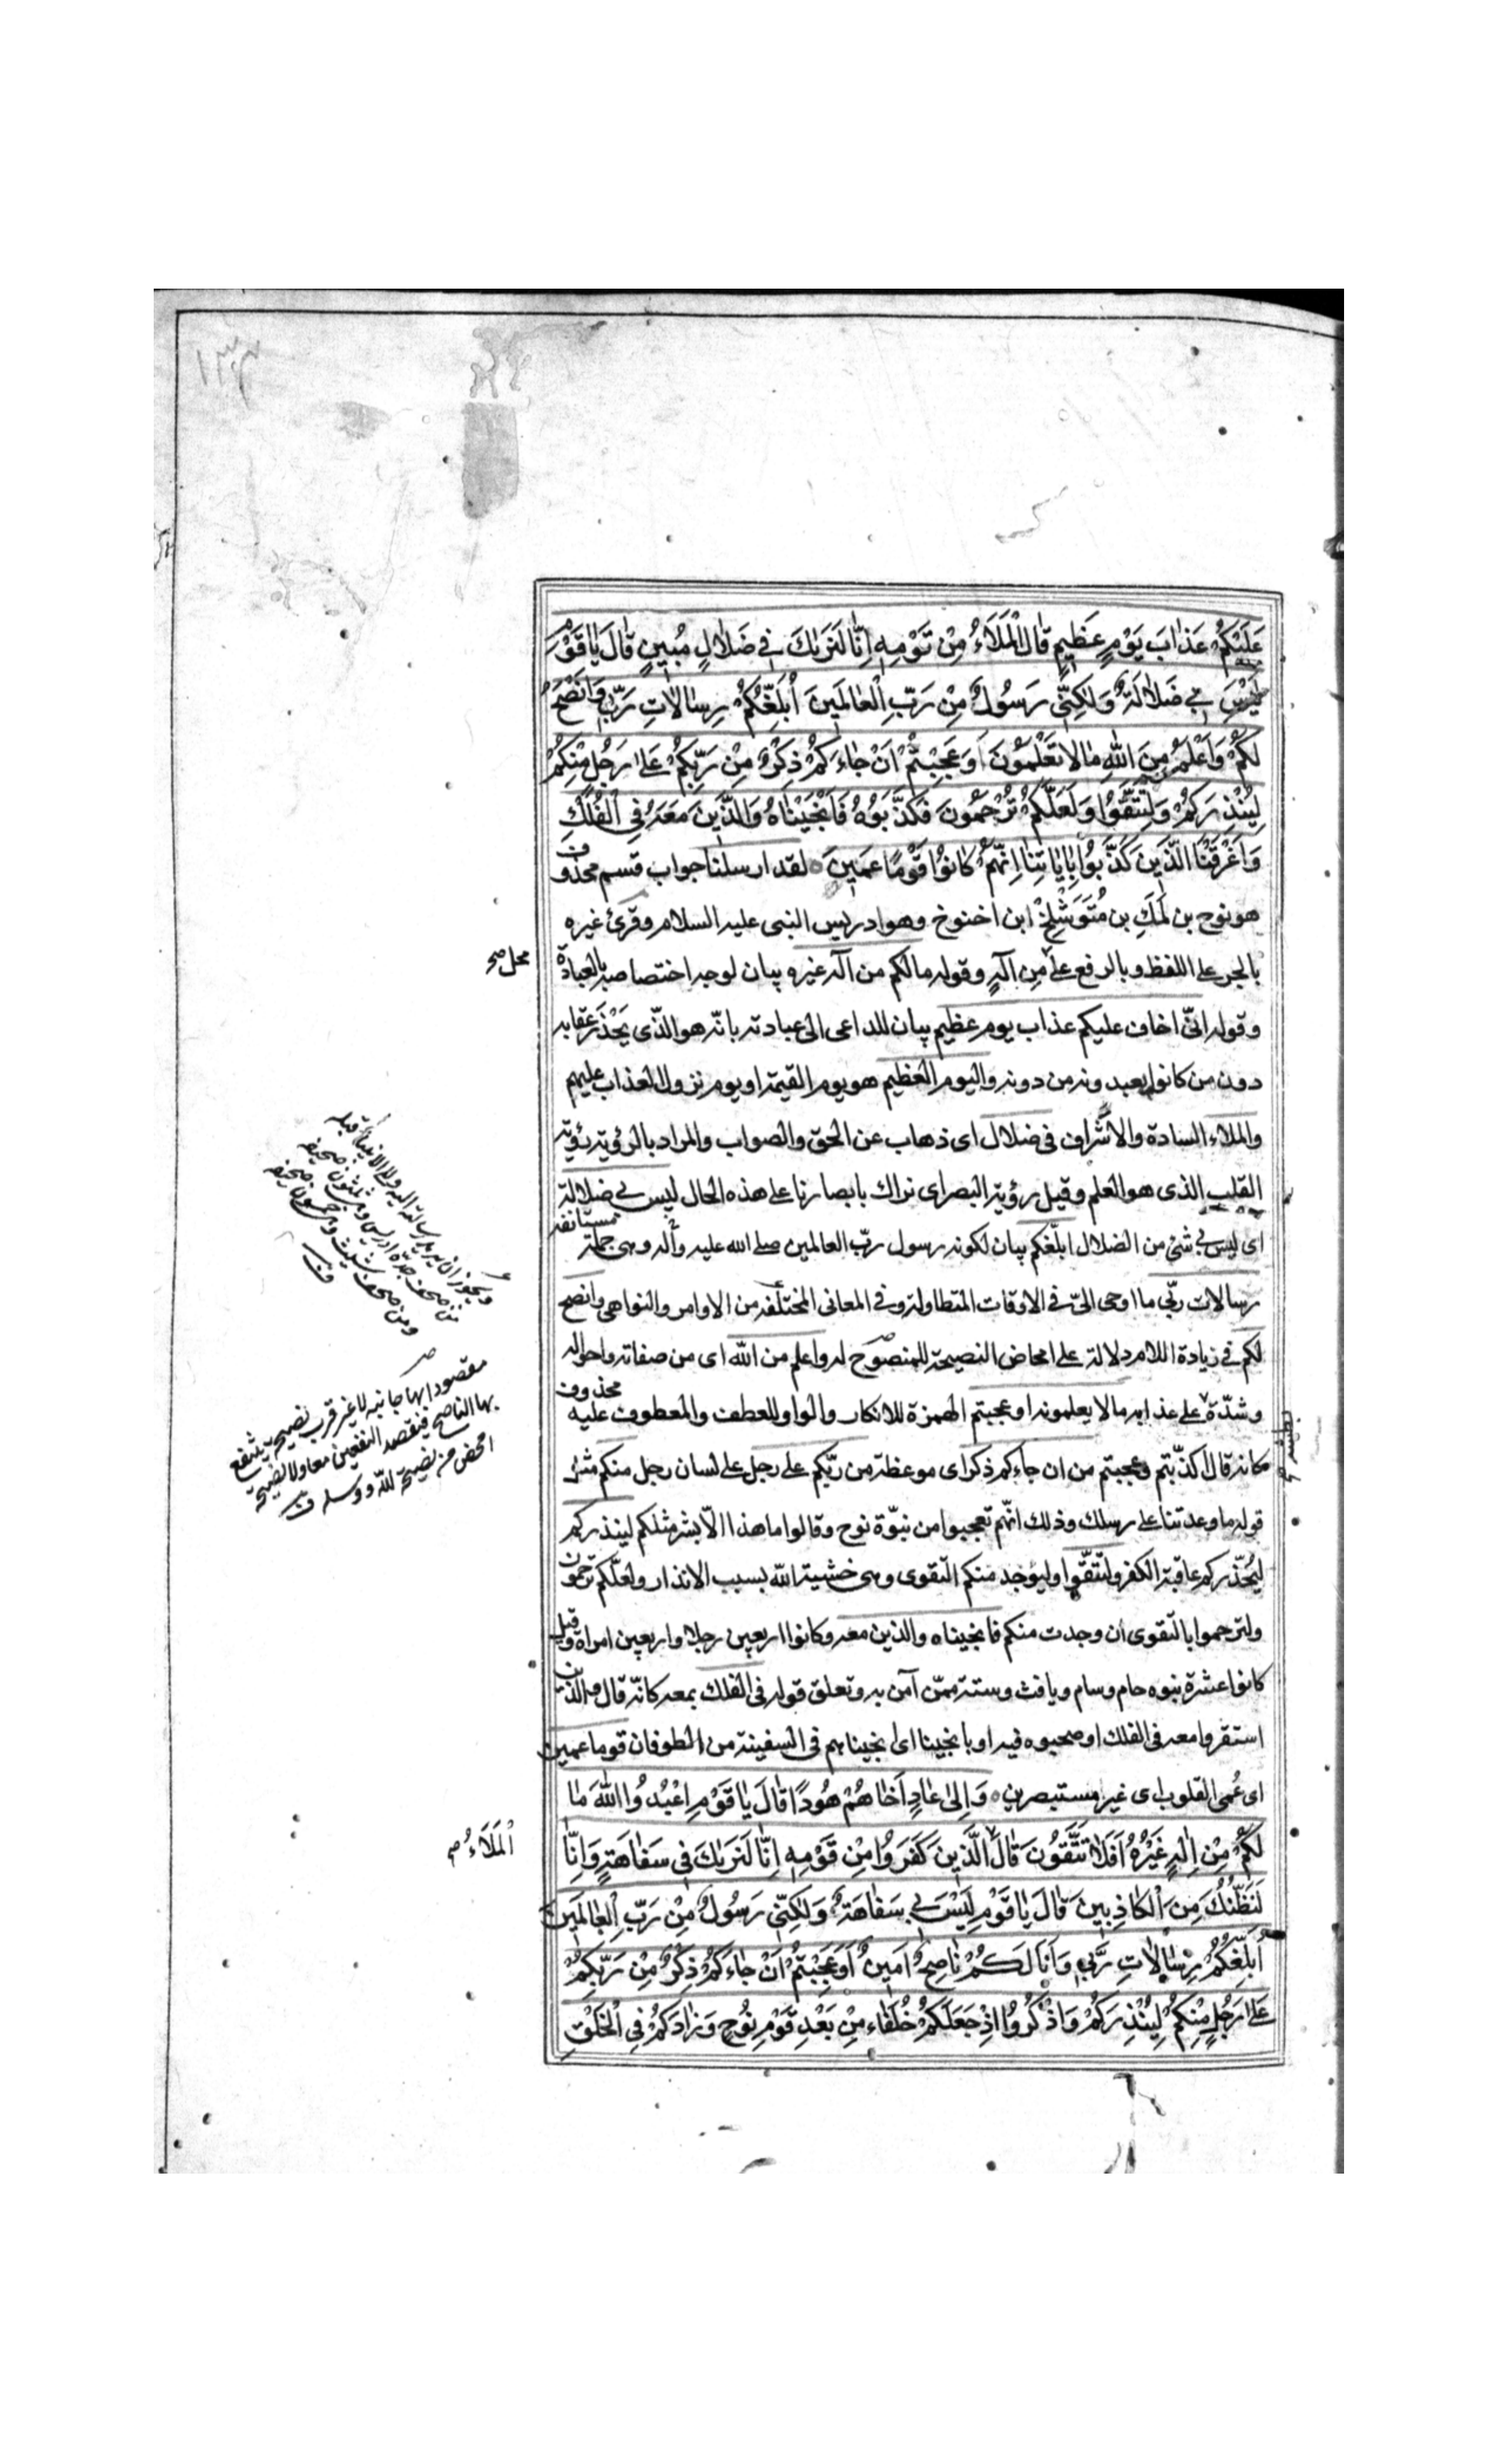 ١٣٣
عَلَيْكُمْ عَذابَ يَوْمٍ عَظيمٍ قالَ الْمَلَاءُ مِنْ قَوْمِهِ اِنّا لَنَرٰيكَ في ضَلالٍ مُبينٍ قالَ يا قَوْمِ
لَيْسَ بي ضَلالَةٌ وَلكِنّي رَسُولٌ مِنْ رَبِّ الْعالَمينَ اُبَلِّغُكُمْ رِسالاتِ رَبّي وَاَنْصَحُ
لَكُمْ وَاَعْلَمُ مِنَ اللّٰهِ ما لا تَعْلَمُونَ اَوَعَجِبْتُمْ اَنْ جاءَكُمْ ذِكْرٌ مِنْ رَبِّكُمْ عَلى رَجُلٍ مِنْكُمْ
لِيُنْذِرَكُمْ وَلِتَتَّقُوا وَلَعَلَّكُمْ تُرْحَمُونَ فَكَذَّبُوهُ فَاَنْجَيْناهُ وَالَّذينَ مَعَهُ فِي الْفُلْكِ
وَاَغْرَقْنَا الَّذينَ كَذَّبُوا بِاياتِنا اِنَّهُمْ كانُوا قَوْمًا عَمينَ لقد ارسلنا جواب قسم محذوف
هو نوح بن لَمَكِ بن مُتَوَشْلِخْ ابن اخنوخ وهو ادريس النبى عليه السلام وقرئ غيره
بالجر على اللفظ وبالرفع على مِن الٓهٍ وقوله مالكم من اله غيره بيان لوجه اختصاصه بالعبادة
محل صح
وقوله انّى اخاف عليكم عذاب يوم عظيم بيان للداعى الى عبادته بانّه هو الذّى يَحْذَر عقابه
دون من كانوا يعبدونه من دونه واليوم العظيم هو يوم القيمة او يوم نزول العذاب عليهم
والملاء السادة والاشراف فى ضلال اى ذهاب عن الحق والصواب والمراد بالرؤية رؤية
القلب الذى هو العلم وقيل رؤية البصر اى نراك بابصارنا على هذه الحال ليس بى ضلالة
اى ليس بى شئ من الضلال ابلّغكم بيان لكونه رسول ربّ العالمين صلى الله عليه وآله وهى جملة مستانفة
رسالات ربّى ما اوحى الىّ فى الاوقات المتطاولة وفى المعانى المختلفة من الاوامر والنواهى وانصح
لكم فى زيادة اللام دلالة على امحاض النصيحة للمنصوح له واعلم من الله اى من صفاته واحواله
وشدّة على عذابه مالا يعلمونه اوعجبتم الهمزة للانكار والواو للعطف والمعطوف عليه محذوف
كانه قال اكذّبتم وعجبتم من ان جاءكم ذكر اى موعظة من ربّكم على رجل على لسان رجل منكم مثل
قوله ما وعدتنا على رسلك وذلك انّهم تعجبوا من نبوّة نوح وقالوا ما هذا الّا بشر مثلكم لينذركم
ليُحَذّركم عاقبة الكفر ولتتّقوا وليؤجد منكم التقوى وهى خشية الله بسبب الانذار ولعلّكم ترحمون
ولترحموا بالتقوى ان وجدت منكم فانجيناه والذين معه وكانوا اربعين رجلا واربعين امراة وقيل
كانوا عشرة بنوه حام وسام ويافث وستة ممّن آمن به وتعلق قوله فى الفلك بمعه كانّه قال والذين
استقروا معه فى الفلك او صحبوه فيه او بانجينا اى انجيناهم فى السفينة من الطوفان قوما عمين
اى عُمى القلوب اى غير مستبصرين وَاِلى عادٍ اَخاهُمْ هُودًا قالَ يا قَوْمِ اعْبُدُوا اللّٰهَ ما
لَكُمْ مِنْ اِلٰهٍ غَيْرُهُ اَفَلا تَتَّقُونَ قالَ الَّذينَ كَفَرُوا مِنْ قَوْمِهِ اِنّا لَنَرٰيكَ في سَفاهَةٍ وَاِنّا
اَلْمَلَاءُ صح
لَنَظُنُّكَ مِنَ الْكاذِبينَ قالَ يا قَوْمِ لَيْسَ بي سَفاهَةٌ وَلكِنّي رَسُولٌ مِنْ رَبِّ الْعالَمينَ
اُبَلِّغُكُمْ رِسالاتِ رَبّي وَاَنَا لَكُمْ ناصِحٌ اَمينٌ اَوَعَجِبْتُمْ اَنْ جاءَكُمْ ذِكْرٌ مِنْ رَبِّكُمْ
عَلى رَجُلٍ مِنْكُمْ لِيُنْذِرَكُمْ وَاذْكُرُوا اِذْ جَعَلَكُمْ خُلَفاءَ مِنْ بَعْدِ قَوْمِ نُوحٍ وَزادَكُمْ فِي الْخَلْقِ
ويجوز ان يريد رسالاته اليه والى الانبياء قبله
من صحف جدّه ادريس وهى ثلثون صحيفة
ومن صحف شيث وهى خمسون صحيفة
مقصودا بها جانبه لا غير فرب نصيحة ينتفع
بها الناصح فيقصد النفعين معا ولا نصيحة
امحض من نصيحة لله ورسله